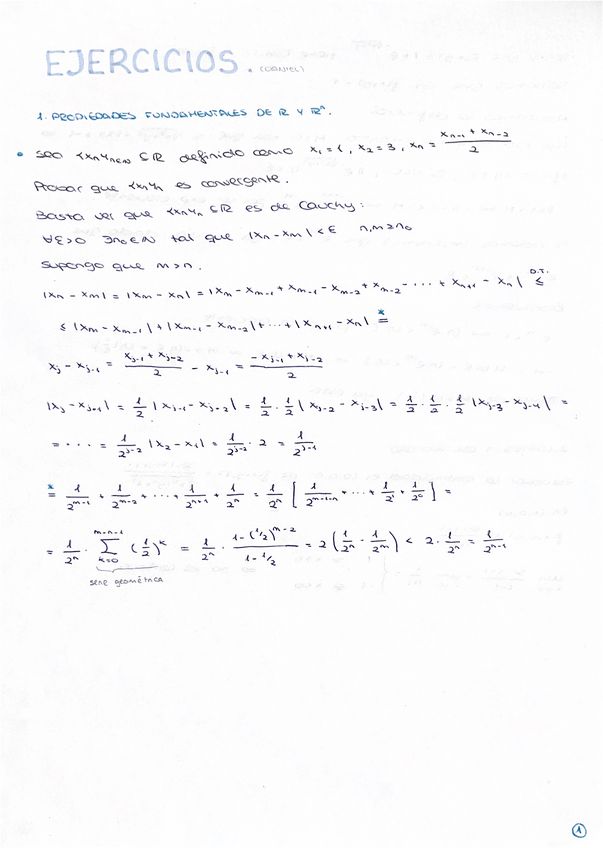 EJERCICIOS. (DANIEL)
1. PROPIEDADES FUNDAMENTALES DE ℝ Y ℝⁿ.
• Sea {xₙ}ₙ∈ℕ ⊆ ℝ definida como x₁ = 1, x₂ = 3, xₙ = (xₙ₋₁ + xₙ₋₂)/2
Probar que {xₙ}ₙ es convergente.
Basta ver que {xₙ}ₙ ⊆ ℝ es de Cauchy:
∀ε>0 ∃n₀∈ℕ tal que |xₙ - xₘ| < ε n,m ≥ n₀
Supongo que m > n.
|xₙ - xₘ| = |xₘ - xₙ| = |xₘ - xₘ₋₁ + xₘ₋₁ - xₘ₋₂ + xₘ₋₂ - ··· + xₙ₊₁ - xₙ| ≤ D.T.
≤ |xₘ - xₘ₋₁| + |xₘ₋₁ - xₘ₋₂| + ··· + |xₙ₊₁ - xₙ| =*
x_j - x_{j-1} = (x_{j-1} + x_{j-2})/2 - x_{j-1} = (-x_{j-1} + x_{j-2})/2
|x_j - x_{j+1}| = 1/2 |x_{j-1} - x_{j-2}| = 1/2 · 1/2 |x_{j-2} - x_{j-3}| = 1/2 · 1/2 · 1/2 |x_{j-3} - x_{j-4}| =
= ··· = 1/2^{j-2} |x₂ - x₁| = 1/2^{j-2} · 2 = 1/2^{j-1}
=* 1/2^{m-1} + 1/2^{m-2} + ··· + 1/2^{n+1} + 1/2^n = 1/2^n [1/2^{m-1-n} + ··· + 1/2^1 + 1/2^0] =
= 1/2^n · ∑_{k=0}^{m-n-1} (1/2)^k = 1/2^n · (1-(1/2)^{m-2})/(1-1/2) = 2(1/2^n - 1/2^m) < 2 · 1/2^n = 1/2^{n-1}
serie geométrica
1